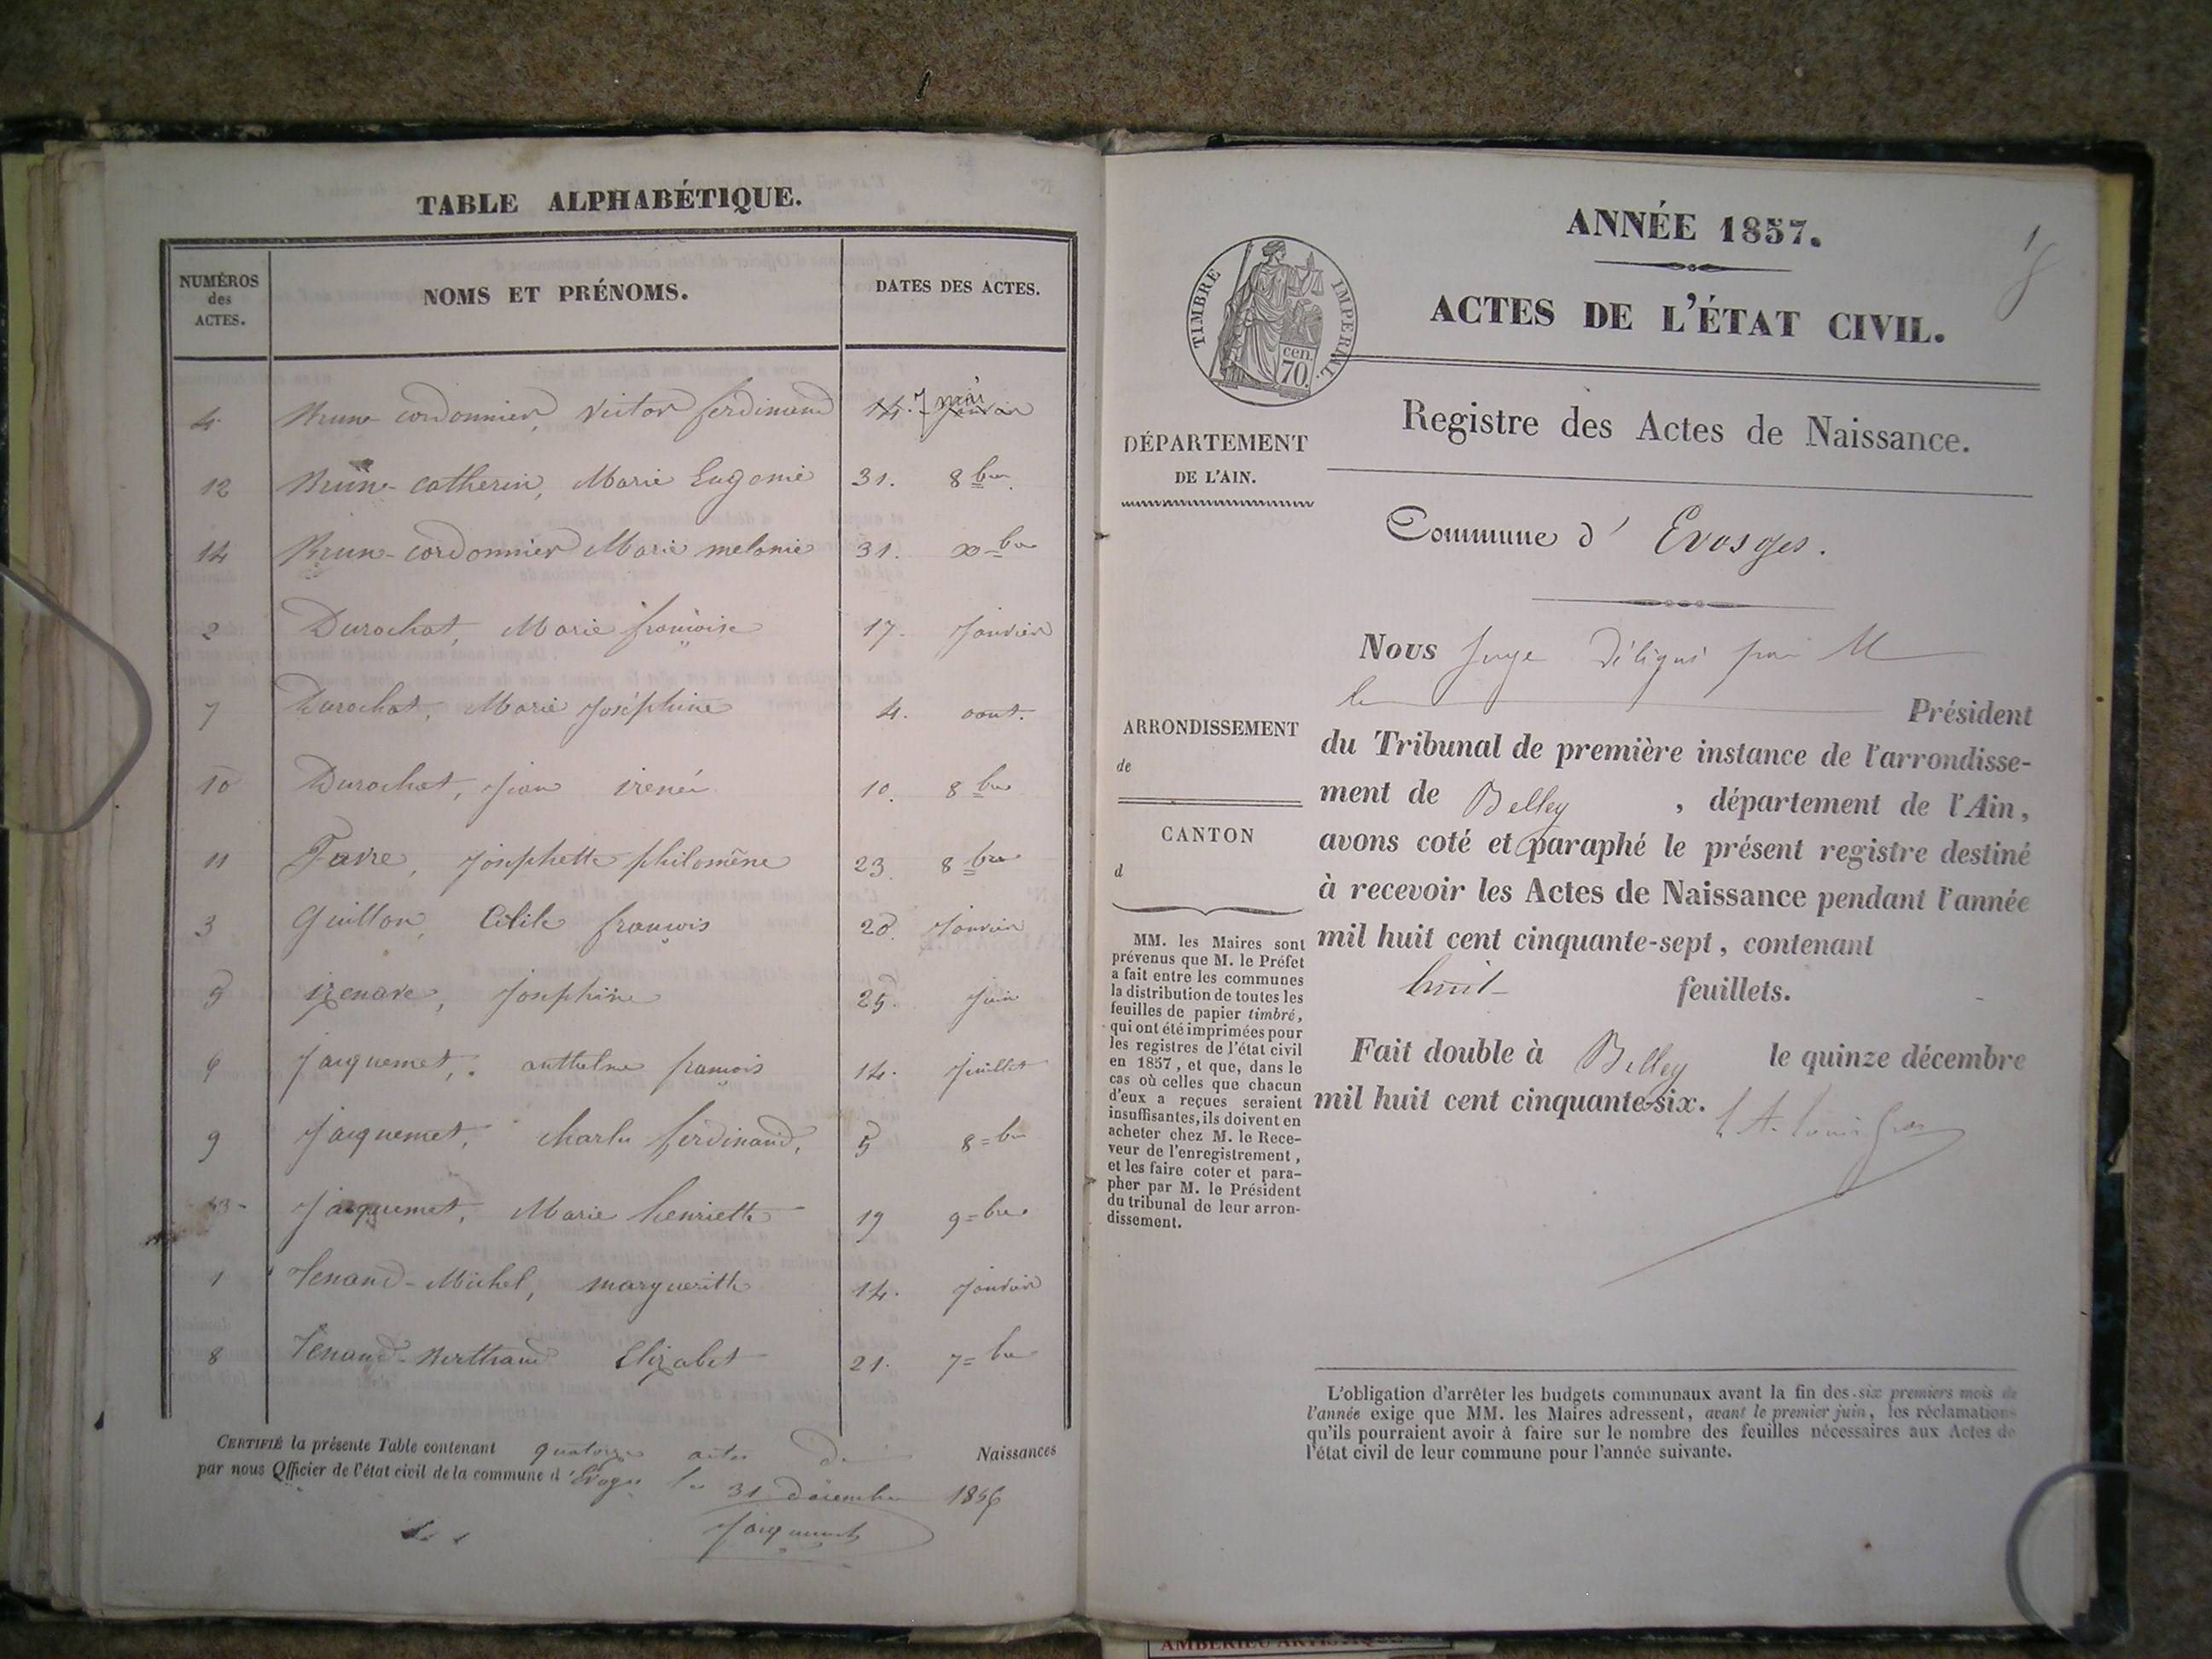 TABLE ALPHABÉTIQUE.
NUMÉROS des ACTES.
NOMS ET PRÉNOMS.
DATES DES ACTES.
4 Brun-cordonnier, Victor ferdinand 14. 7 mai janvier
12 Brun-catherin, Marie Eugenie 31. 8bre
14 Brun-cordonnier Marie melanie 31. xbre
2 Durochat, Marie françoise 17. Janvier
7 Durochat, Marie Joséphine 4. aout.
10 Durochat, Jean irené 10. 8bre
11 Favre, Josephette philomène 23. 8bre
3 Guillon, françois 20. Janvier
5 izenave, Josephine 25. Juin
6 Jacquemet, anthelme françois 14. Juillet
9 Jacquemet, charles ferdinand, 5 8=bre
13- Jacquemet, Marie henriette 19 9=bre
1 Tenand-Michel, marguerith 14. Janvier
8 Tenand-Berthand Elizabet 21. 7=bre
CERTIFIÉ la présente Table contenant quatorze actes de Naissances
par nous Officier de l'état civil de la commune d'Evoges le 31 décembre 1856
Jacquemet
ANNÉE 1857.
1
ACTES DE L'ÉTAT CIVIL.
TIMBRE IMPERIAL
70. cen.
Registre des Actes de Naissance.
DÉPARTEMENT
DE L'AIN.
Commune d' Evosges.
Nous Juge Délégué par M
le Président
du Tribunal de première instance de l'arrondisse-
ment de Belley, département de l'Ain,
avons coté et paraphé le présent registre destiné
à recevoir les Actes de Naissance pendant l'année
mil huit cent cinquante-sept, contenant
huit feuillets.
Fait double à Belley le quinze décembre
mil huit cent cinquante-six.
ARRONDISSEMENT
de
CANTON
d
MM. les Maires sont
prévenus que M. le Préfet
a fait entre les communes
la distribution de toutes les
feuilles de papier timbré,
qui ont été imprimées pour
les registres de l'état civil
en 1857, et que, dans le
cas où celles que chacun
d'eux a reçues seraient
insuffisantes, ils doivent en
acheter chez M. le Rece-
veur de l'enregistrement,
et les faire coter et para-
pher par M. le Président
du tribunal de leur arron-
dissement.
L'obligation d'arrêter les budgets communaux avant la fin des six premiers mois de
l'année exige que MM. les Maires adressent, avant le premier juin, les réclamations
qu'ils pourraient avoir à faire sur le nombre des feuilles nécessaires aux Actes de
l'état civil de leur commune pour l'année suivante.